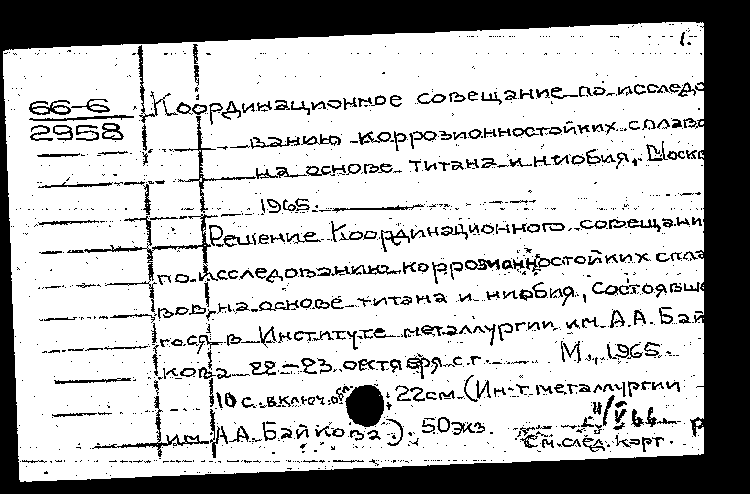 1.
66-6 Координационное совещание по исследо
2958
ванию коррозионностойких сплаво
на основе титана и ниобия, Москв
1965.
Решение Координационного совещани
по исследованию коррозионностойких спла
вов на основе титана и ниобия, состоявше
гося в Институте металлургии им А.А. Бай
кова 22-23 октября с.г. М., 1965.
10 с. включ. обл. 22 см. (Ин-т металлургии
им А.А. Байкова). 50 экз.
См. след. карт.